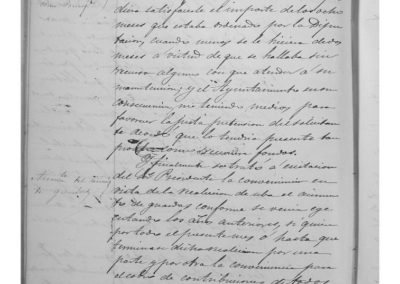 dira satisfacerle el importe de los ocho
meses que estaba ordenado por la Dipu
tacion, cuando menos se le hiciera de dos
meses a virtud de que se hallaba sin
recurso alguno con que atender a su
manutencion; y el Ayuntamiento en su
consecuencia, no teniendo medios para
favorecer la justa pretension del solicitan
te acordó que lo tendria presente tan
pronto como fondos.
Y finalmente se trató a excitacion
del Sr. Presidente la conveniencia en
vista de la el aumen
to de guardas conforme se venia eje
cutando los años anteriores, si quiera
por todo el presente mes ó hasta que
terminase dicha por una
parte y por otra la conveniencia para
el cobro de contribuciones de todos